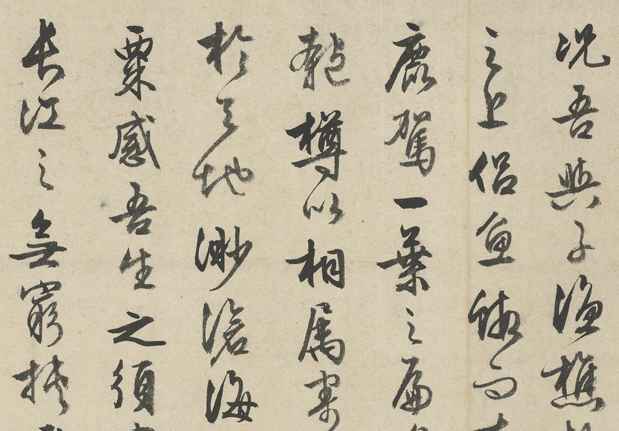 况吾與子漁樵
之上侶魚蝦而
鹿駕一葉之扁
匏樽以相屬寄
於天地渺滄海
粟感吾生之須
長江之無窮挾